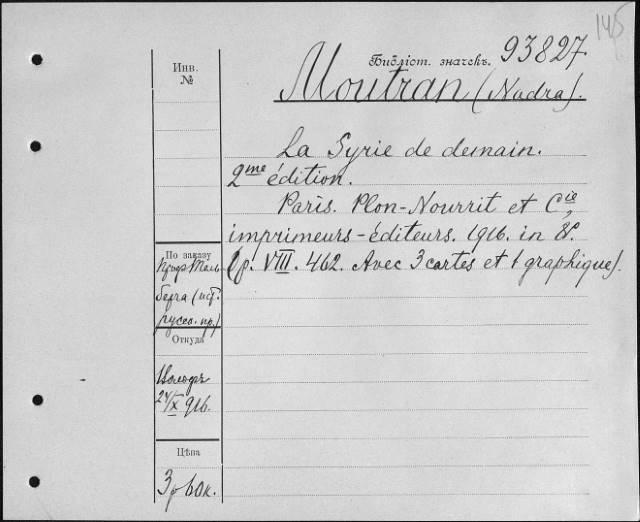 145
Инв.
№
Библіот. значекъ. 93827
Moutran (Nadra).
La Syrie de demain.
2me édition.
Paris. Plon-Nourrit et Cie,
imprimeurs-éditeurs. 1916. in 8°.
(p. VIII. 462. Avec 3 cartes et 1 graphique).
По заказу
Проф. Таль
берга (ист.
русск. пр.)
Откуда
24/X 916.
Цѣна
3р 60к.